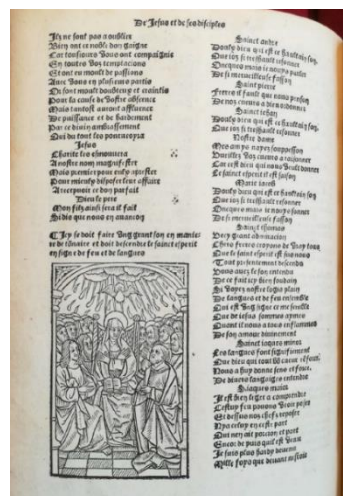 De Jesus et de ses disciples
Ilz ne sont pas a oublier
Bien ont ce noble don gaigne
Car tousiours vous ont compaignie
En toutes voz temptacions
Et ont eu moult de passions
Avec vous en plusieurs parties
Or sont moult doubteux et craintis
Pour la cause de vostre absence
Mais tantost auront affluence
De puissance et de hardement
Par ce divin
Qui de tout les
Jesus
Charite les enouurera
A nostre nom magnifester
Mais premier pour enquester
Pour mieulx disposer leur affaire
A recepuoir ce don parfait
Dieu le pere
Mon filz ainsi sera il fait
Si dis que nous en
Icy se doit faire ung grant son en manie
re de tonnoire et doit descendre le sainct esperit
en signe de feu et de langues
Sainct andre
Doulx dieu qui est ce haultain son
Que ioy si treshault resonner
Oncques mais ie nouy parler
De si merueilleuse fasson
Sainct pierre
Sainct iehan
Doulx dieu qui est ce haultain son
Que ioy si treshault resonner
Nostre dame
Mes amys nayez souppesson
Vueillez voz cueurs a
Car cest dieu qui nous veult donner
Le sainct esperit cest
Marie iacobi
Doulx dieu qui est ce haultain son
Que ioy si treshault resonner
Oncques mais ie nouy sonner
De si merueilleuse fasson
Sainct thomas
Chers freres croyons de vray
Que le sainct esperit est sus nous
Tout presentement descendu
Vous avez le son entendu
De ce fait icy bien
Si voyez nostre logis plain
De langues et de feu ensemble
Qui est ung signe ce me semble
Que de iesus sommes aymez
Quant il nous a tous enflammez
De son amour divinement
Sainct iaques minor
Les langues font signifiement
Que dieu qui tout
Nous a huy donne sens et
De divers langaiges entendre
S. iaques maior
Il est bien legier a comprendre
Cestuy feu pouons veoir poser
Et dessus noz chefz reposer
Nya cestuy en ceste part
Qui nen ait portion et part
Encor de puis quil est venu
Je suis plus hardy devenu
Mille foys que devant nestoit